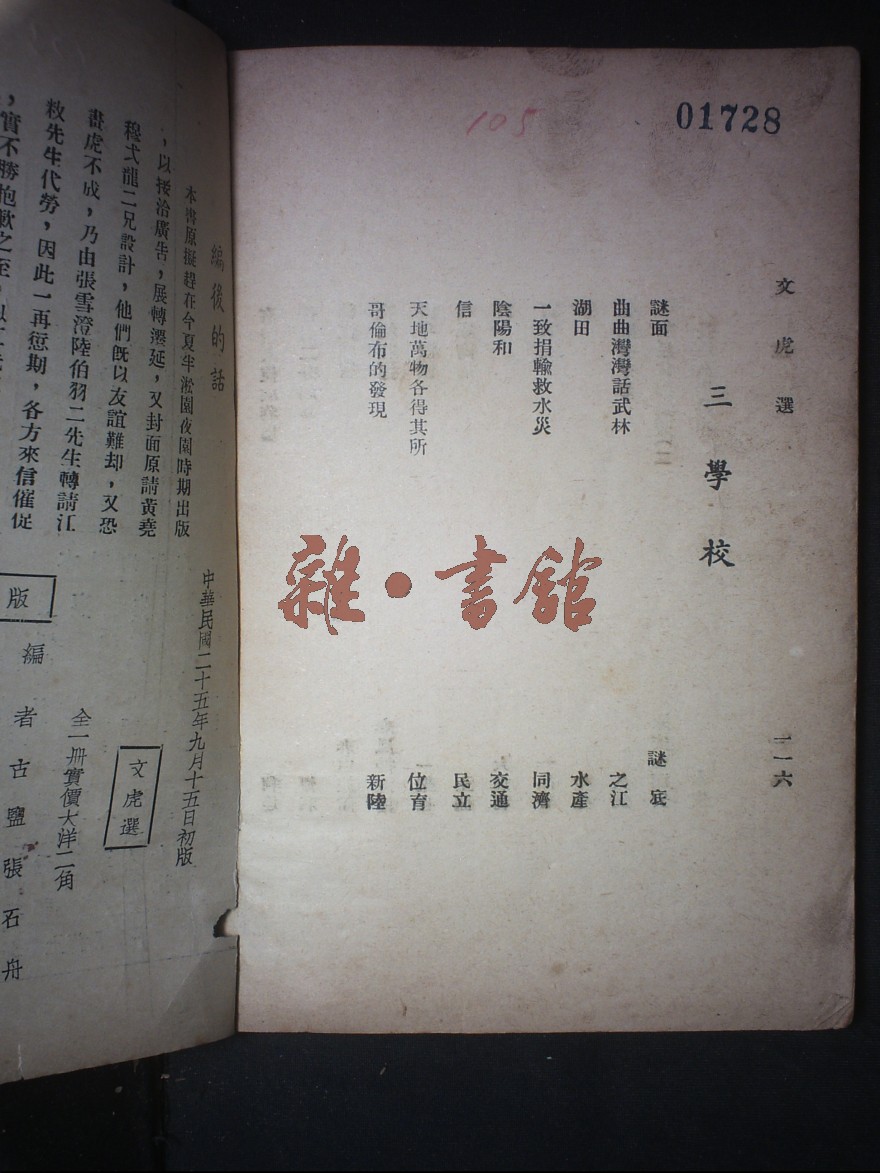 01728
105
文虎選
三學校
一一六
謎面
謎底
曲曲灣灣話武林
之江
湖田
水產
一致捐輸救水災
同濟
陰陽和
交通
信
民立
天地萬物各得其所
位育
哥倫布的發現
新陸
雜·書館
編後的話
本書原擬趕在今夏半淞園夜園時期出版
，以接洽廣告，展轉遷延，又封面原請黃堯
穆弌龍二兄設計，他們旣以友誼難却，又恐
畫虎不成，乃由張雪澄陸伯羽二先生轉請江
敉先生代勞，因此一再愆期，各方來信催促
，實不勝抱歉之至，
中華民國二十五年九月十五日初版
文虎選
全一冊實價大洋二角
版
編者古鹽張石舟